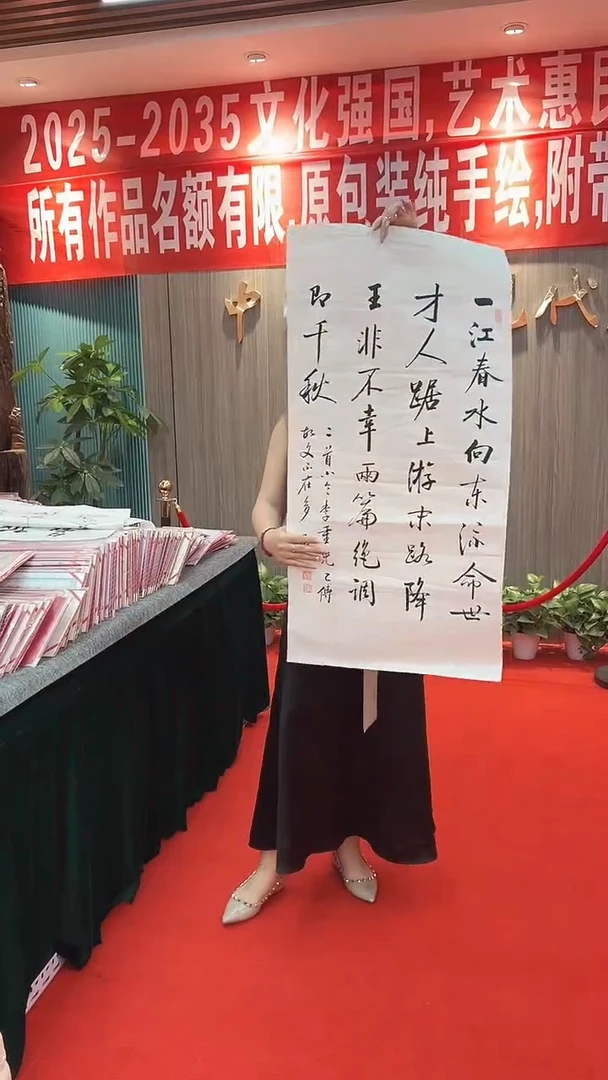 2025-2035文化强国,艺术惠民
所有作品名额有限,原包装纯手绘,附带
中 代
一江春水向东流命世
才人踞上游末路降
王非不幸兩篇绝调
即千秋
二首小令李重光已傳
文不在多